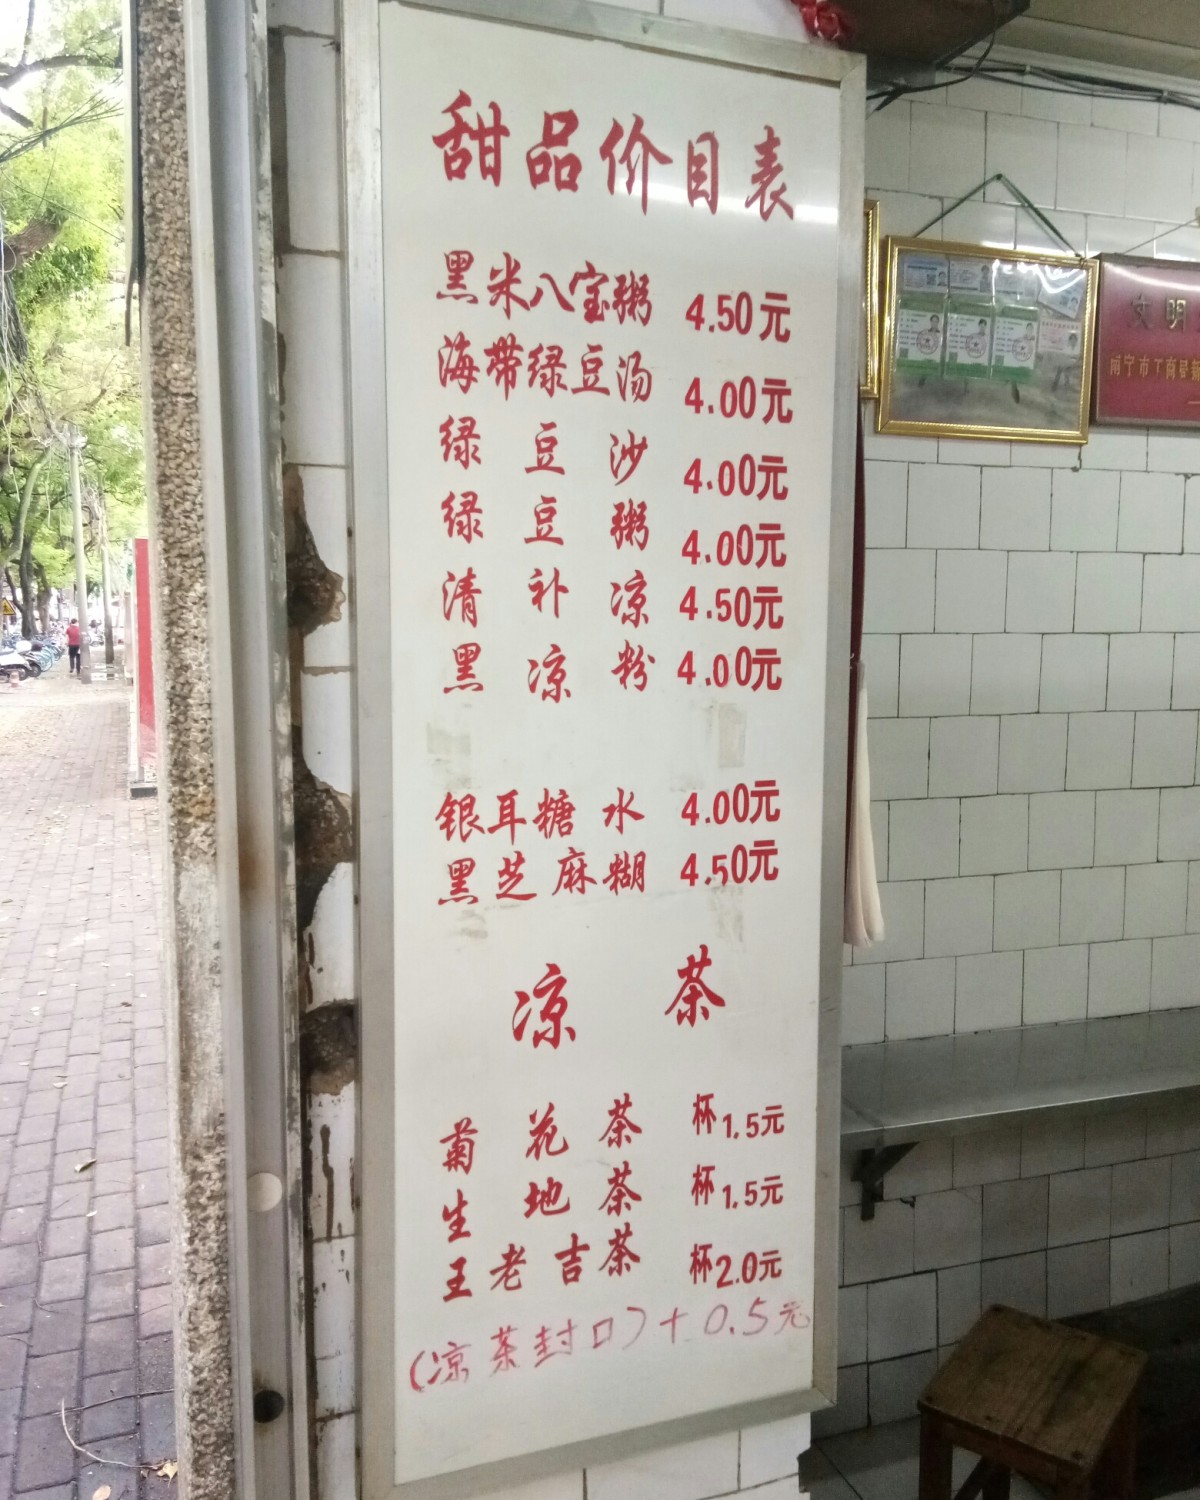 甜品价目表
黑米八宝粥 4.50元
海带绿豆汤 4.00元
绿豆沙 4.00元
绿豆粥 4.00元
清补凉 4.50元
黑凉粉 4.00元
银耳糖水 4.00元
黑芝麻糊 4.50元
凉茶
菊花茶 杯1.5元
生地茶 杯1.5元
王老吉茶 杯2.0元
(凉茶封口)+0.5元
文明
南宁市工商局